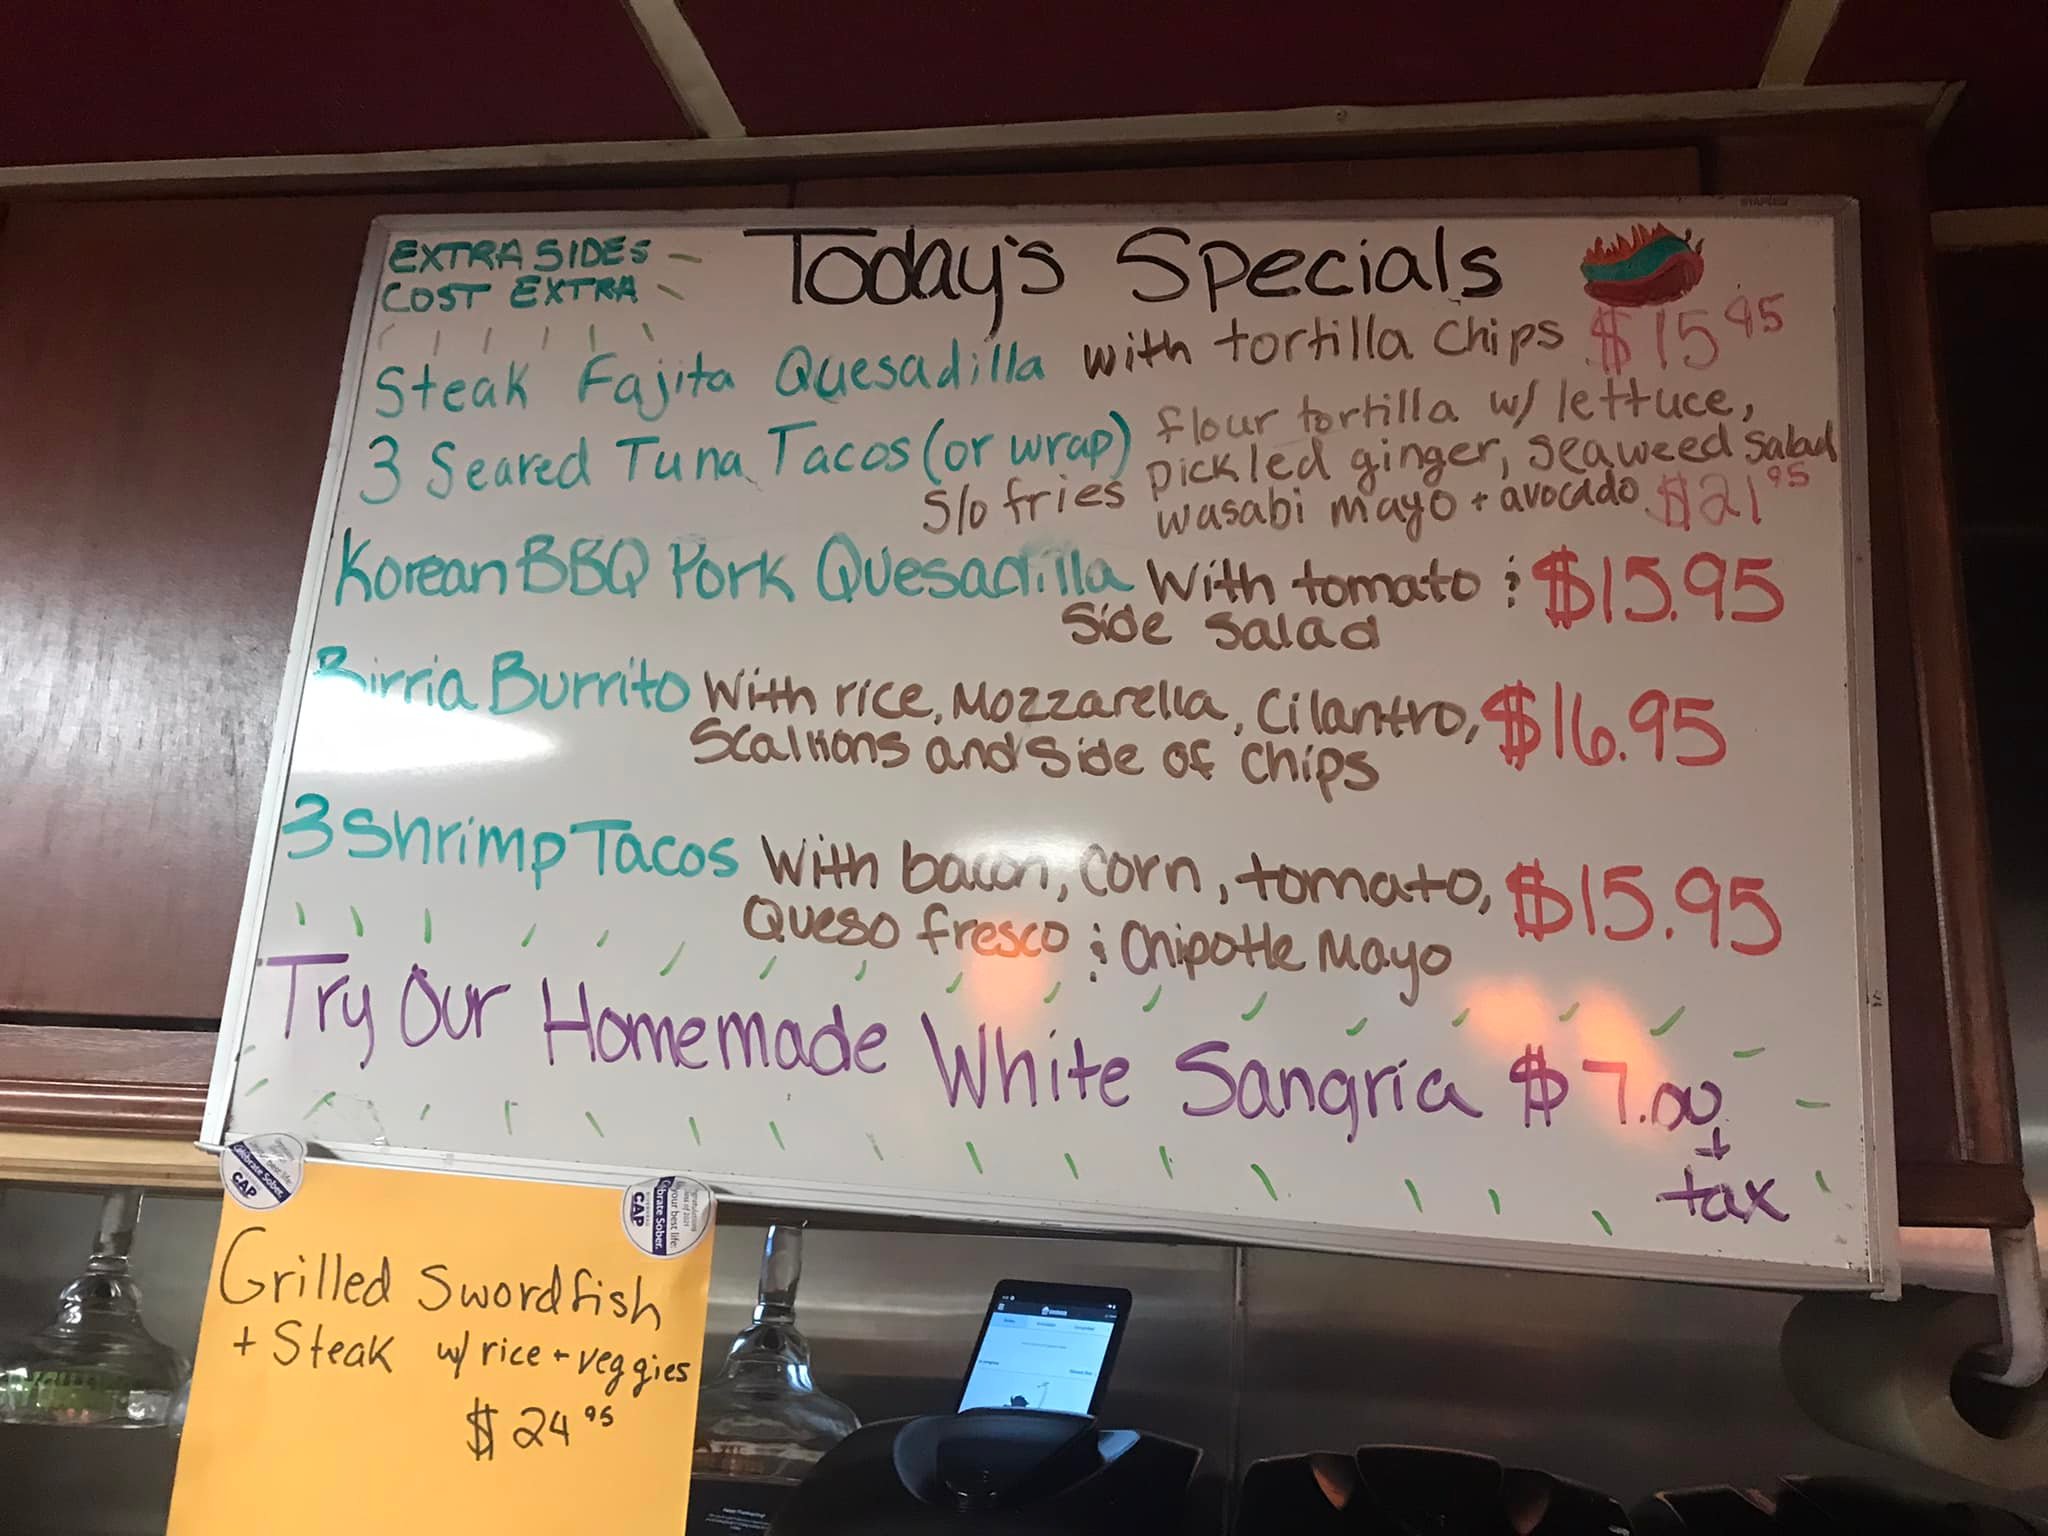 EXTRA SIDES
COST EXTRA
Today's Specials
Steak Fajita Quesadilla with tortilla chips $15 95
3 Seared Tuna Tacos (or wrap) flour tortilla w/ lettuce,
pickled ginger, seaweed salad
s/o fries wasabi mayo + avocado $21 95
Korean BBQ Pork Quesadilla With tomato & $15.95
Side Salad
Birria Burrito With rice, Mozzarella, Cilantro, $16.95
Scallions and Side of Chips
3 Shrimp Tacos With bacon, corn, tomato, $15.95
Queso fresco & Chipotle Mayo
Try Our Homemade White Sangria $7.00
+
tax
Celebrate Sober.
CAP
your best life
brate Sober.
CAP
Grilled Swordfish
+ Steak w/ rice + veggies
$24 95